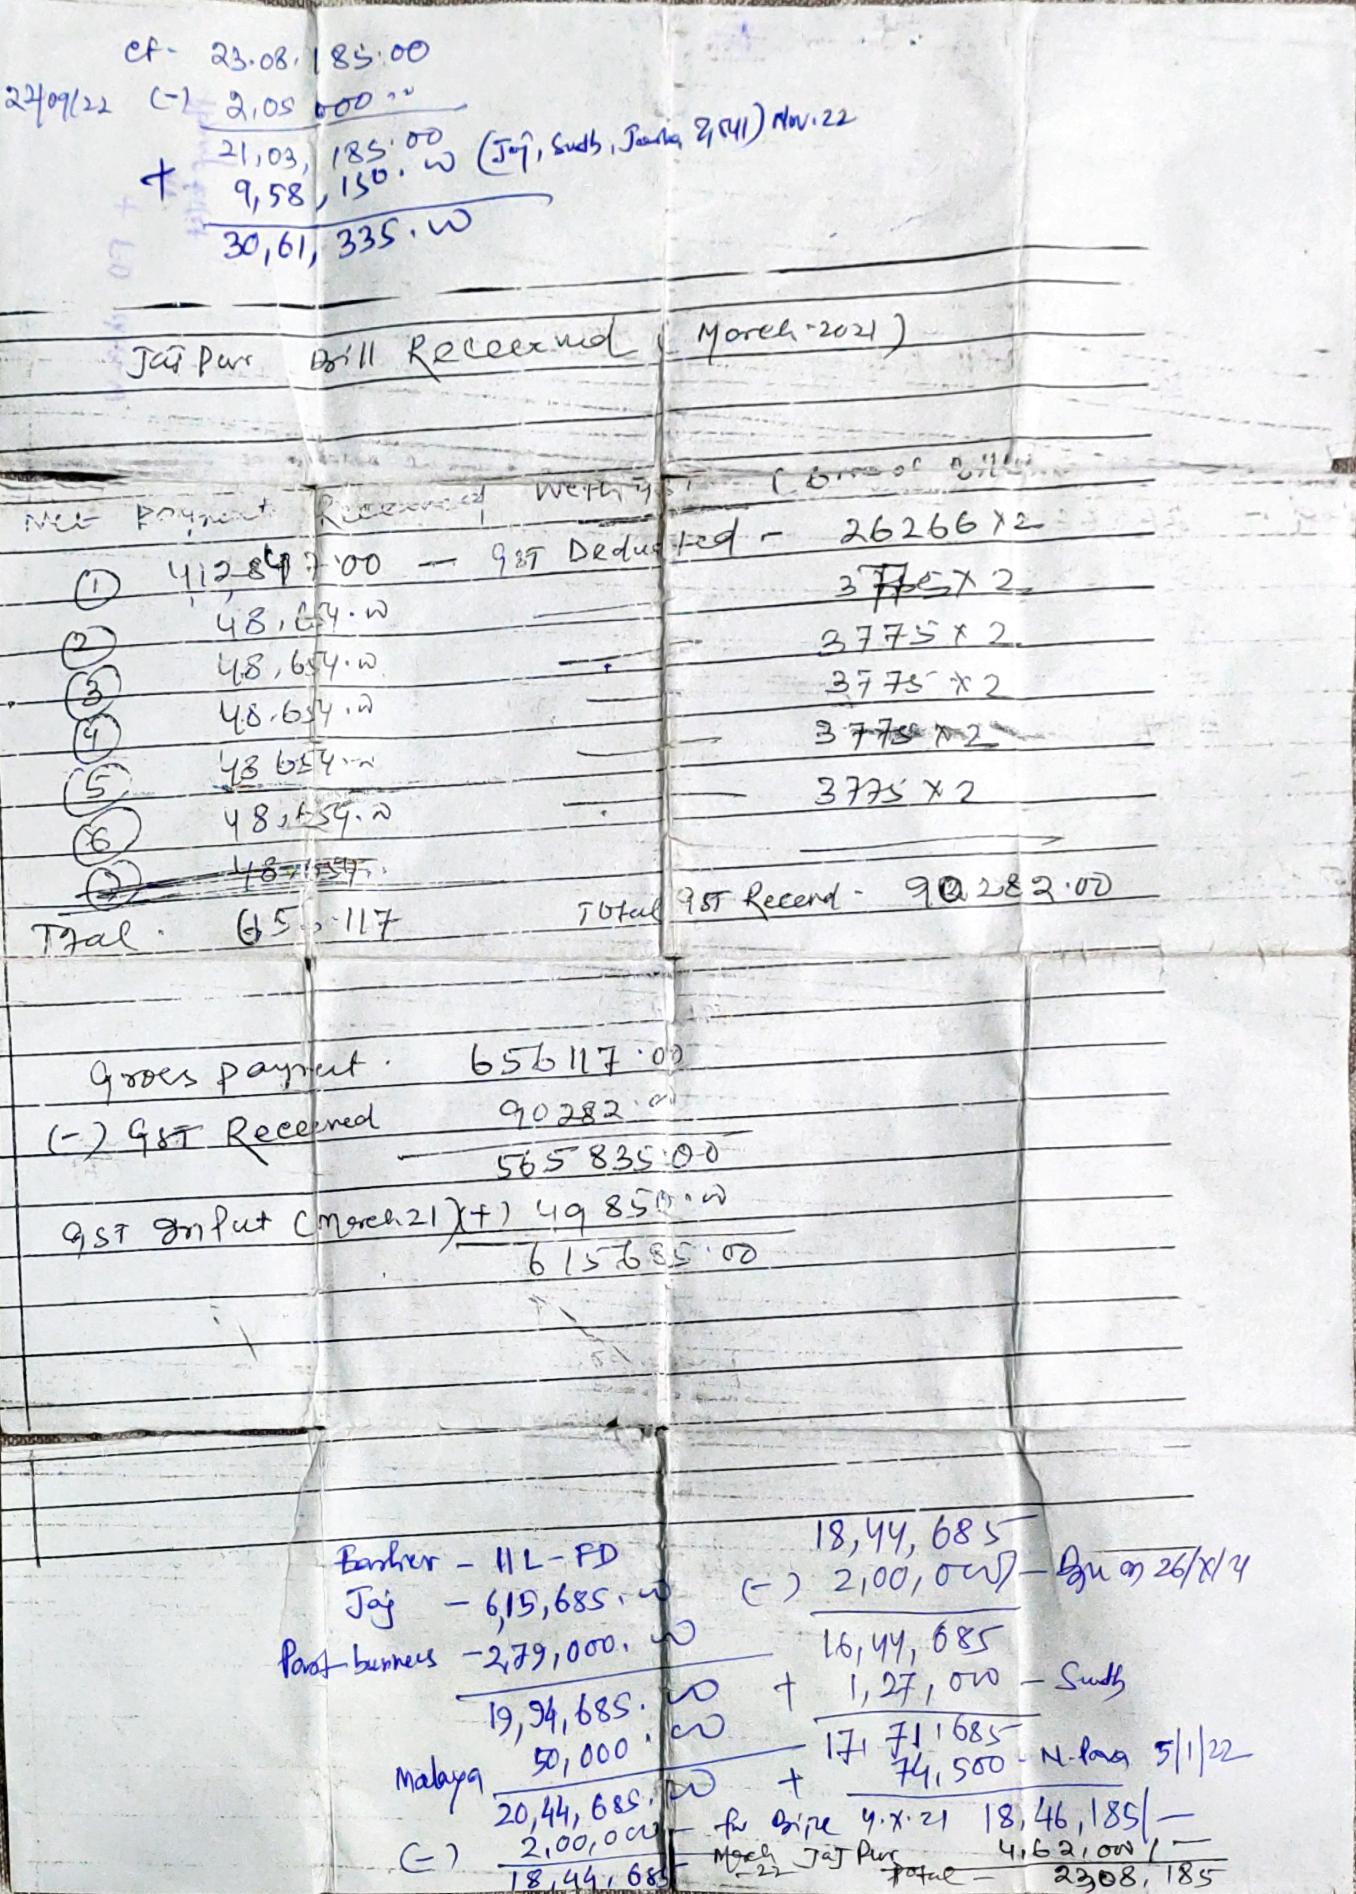 cf- 23.08.185.00
27/09/22 (-) 2,05,000
21,03,185.00
+ 9,58,150.00 (Jaj, Sudh, Nov.22
30,61,335.00
JajPur Bill Received (March-2021)
Net Payment Received With
① 4,12,847.00 — GST Deducted - 26266 x 2
② 48,654.00 3775 x 2
③ 48,654.00 — 3775 x 2
④ 48,654.00 — 3775 x 2
⑤ 48654.00 — 3775 x 2
⑥ 48,654.00 — 3775 x 2
Total. 65 117 Total GST Received - 90282.00
Gross payment. 656117.00
(-) GST Received 90282.00
565835.00
GST Input (March 21) (+) 49850.00
615685.00
Earlier - 11L-FD
Jaj - 6,15,685.00
business - 2,79,000.00
19,94,685.00
Malaya 50,000.00
20,44,685.00
(-) 2,00,000 - for 4.X.21
18,44,685
18,44,685
(-) 2,00,000 - on 26/X/21
16,44,685
+ 1,27,000 - Sudh
17,71,685
+ 74,500 - 5/1/22
18,46,185/-
March 22 JajPur 4,62,000/-
Total - 2308,185